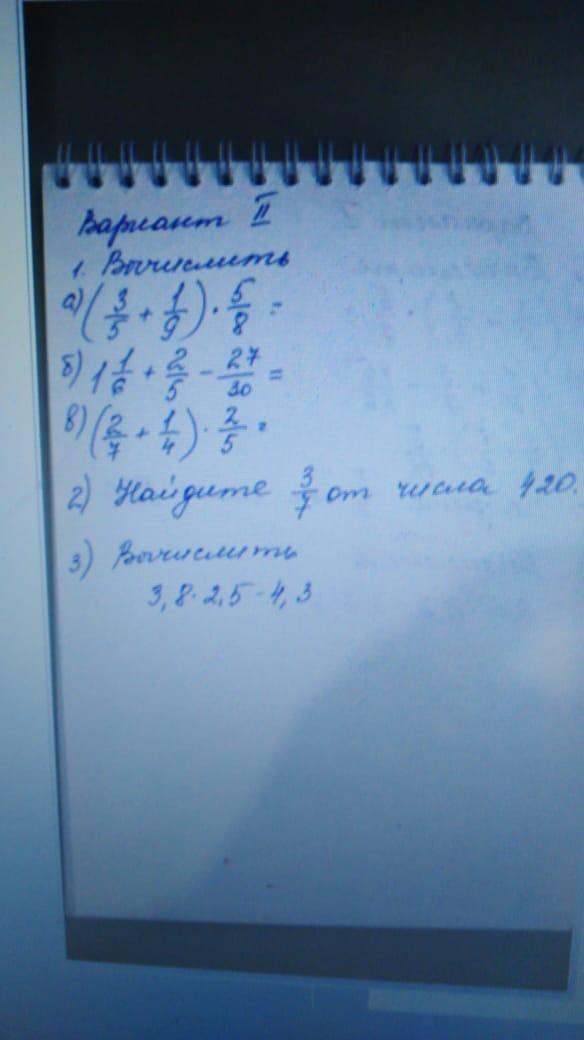 Вариант II
1. Вычислить
а) (3/5 + 1/9) · 5/8 =
б) 1 1/6 + 2/5 - 27/30 =
в) (2/7 + 1/4) · 2/5 =
2) Найдите 3/7 от числа 420.
3) Вычислить
3,8 · 2,5 - 4,3